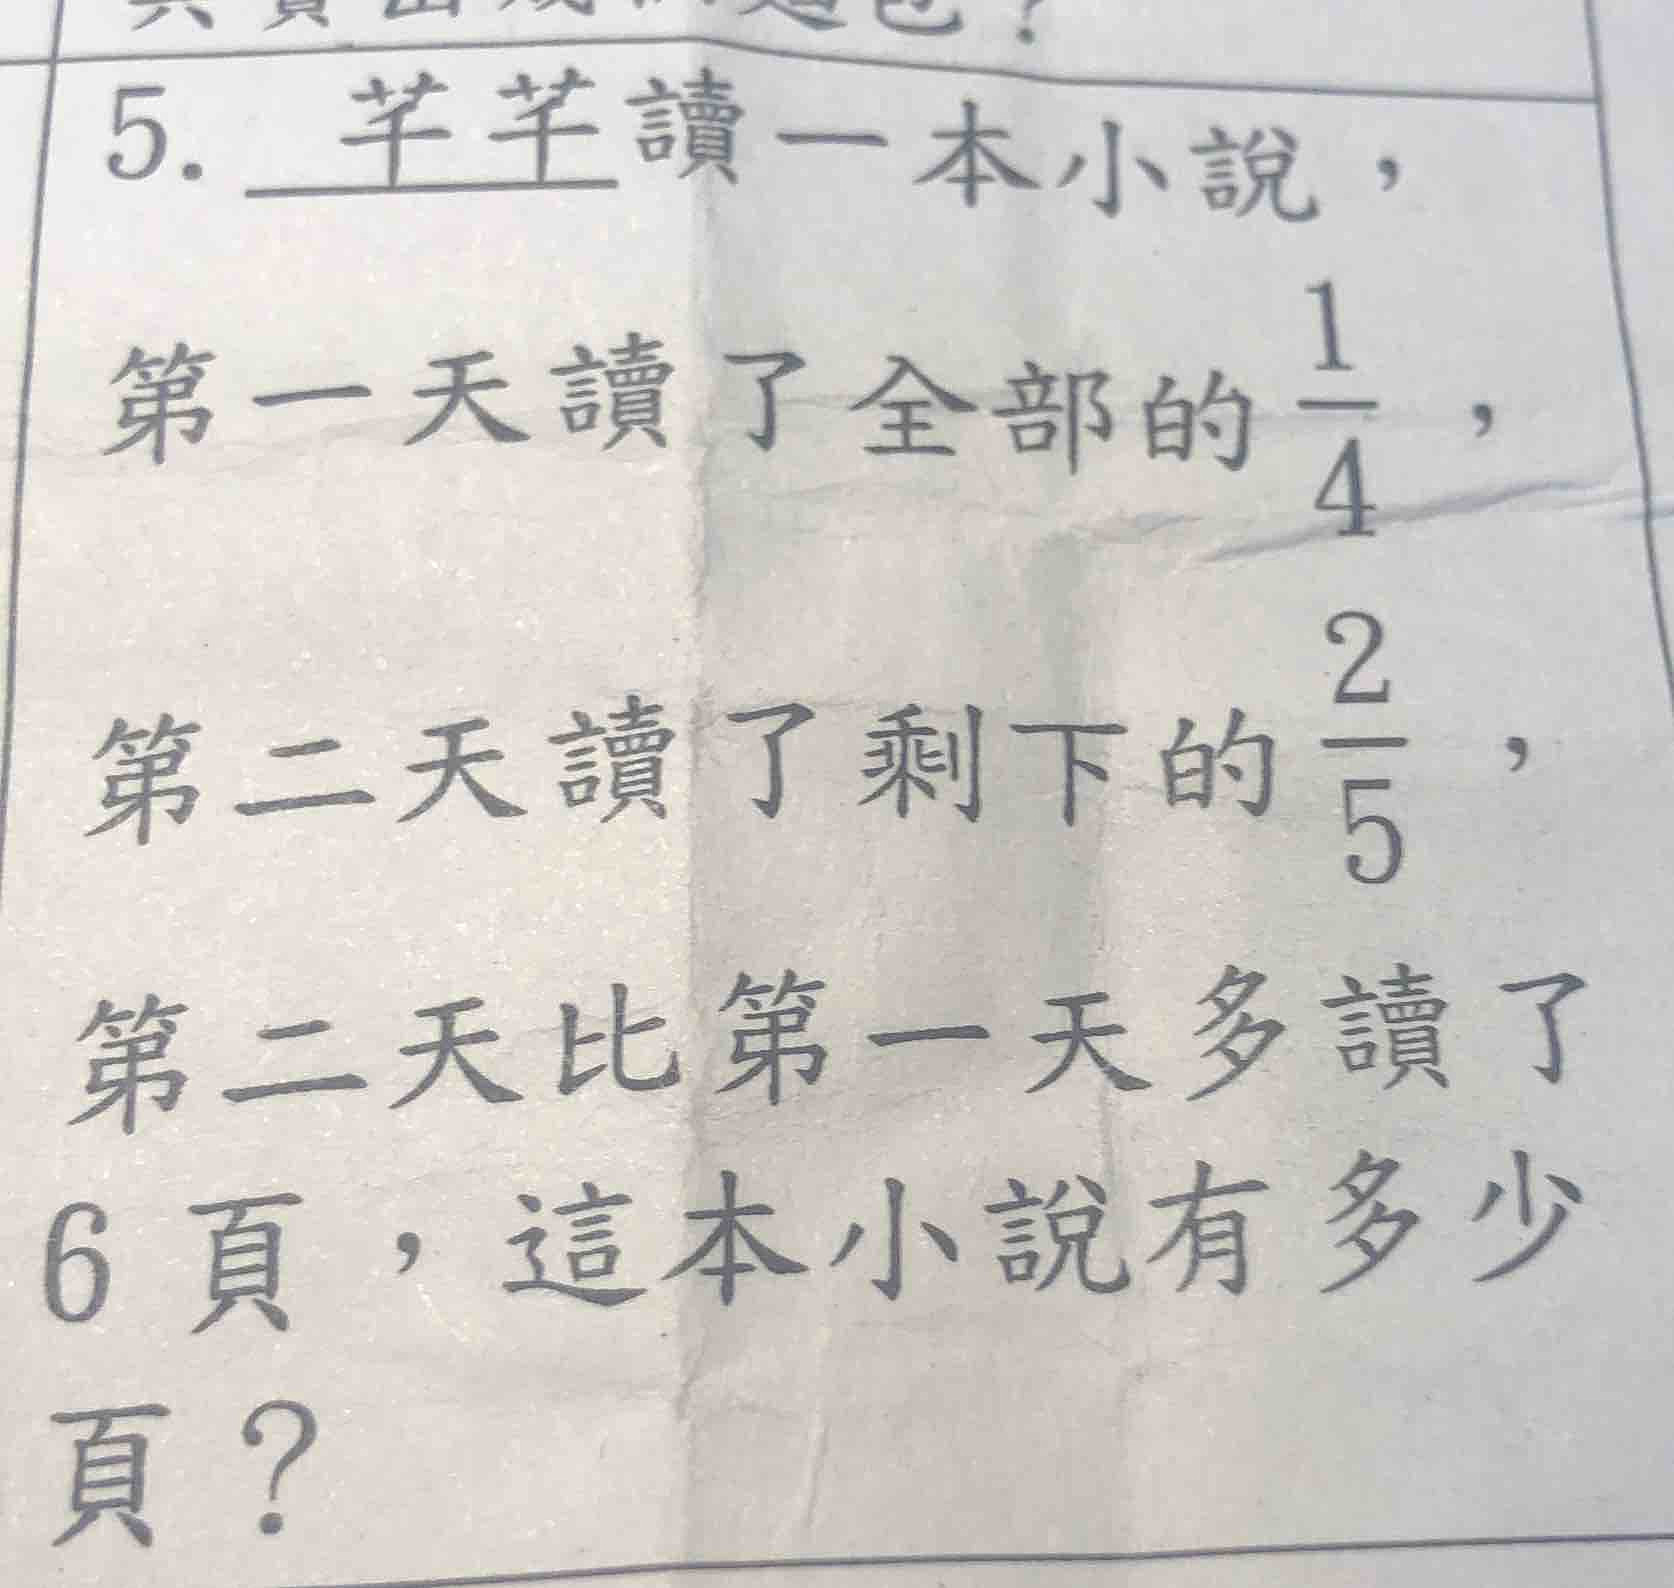 5. 芊芊讀一本小說，
第一天讀了全部的1/4，
第二天讀了剩下的2/5，
第二天比第一天多讀了
6頁，這本小說有多少
頁？